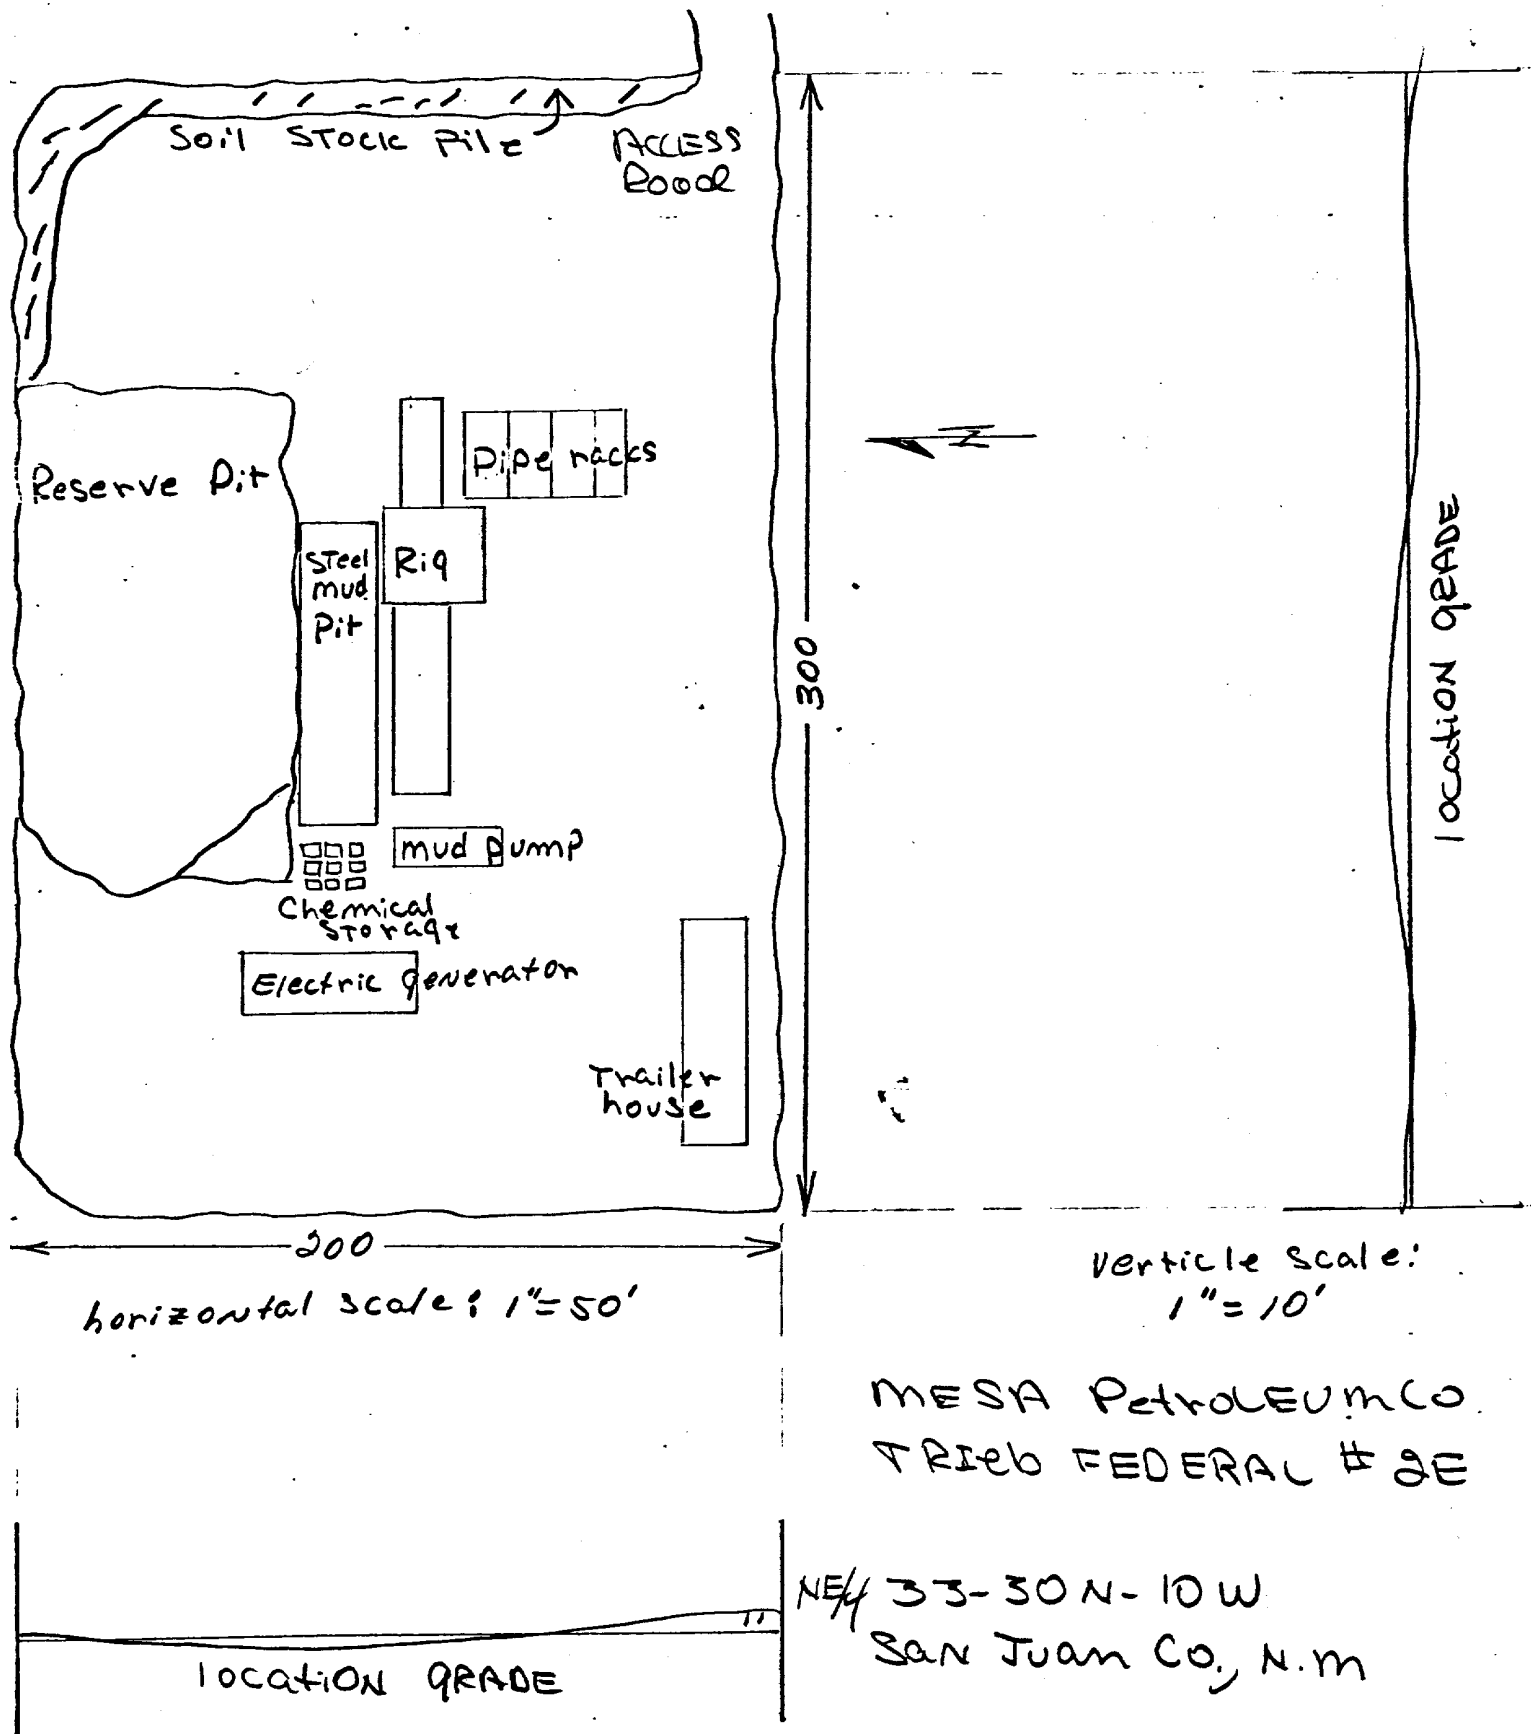 Soil Stock Pile
ACCESS
Road
Reserve Pit
Pipe racks
Steel
mud
Pit
Rig
N
300
location GRADE
mud pump
Chemical
Storage
Electric generator
Trailer
house
200
horizontal scale: 1"=50'
verticle scale:
1"=10'
MESA PetroLEUM CO
TRIeb FEDERAL # 2E
NE/4 33-30N-10W
San Juan Co., N.M
location GRADE